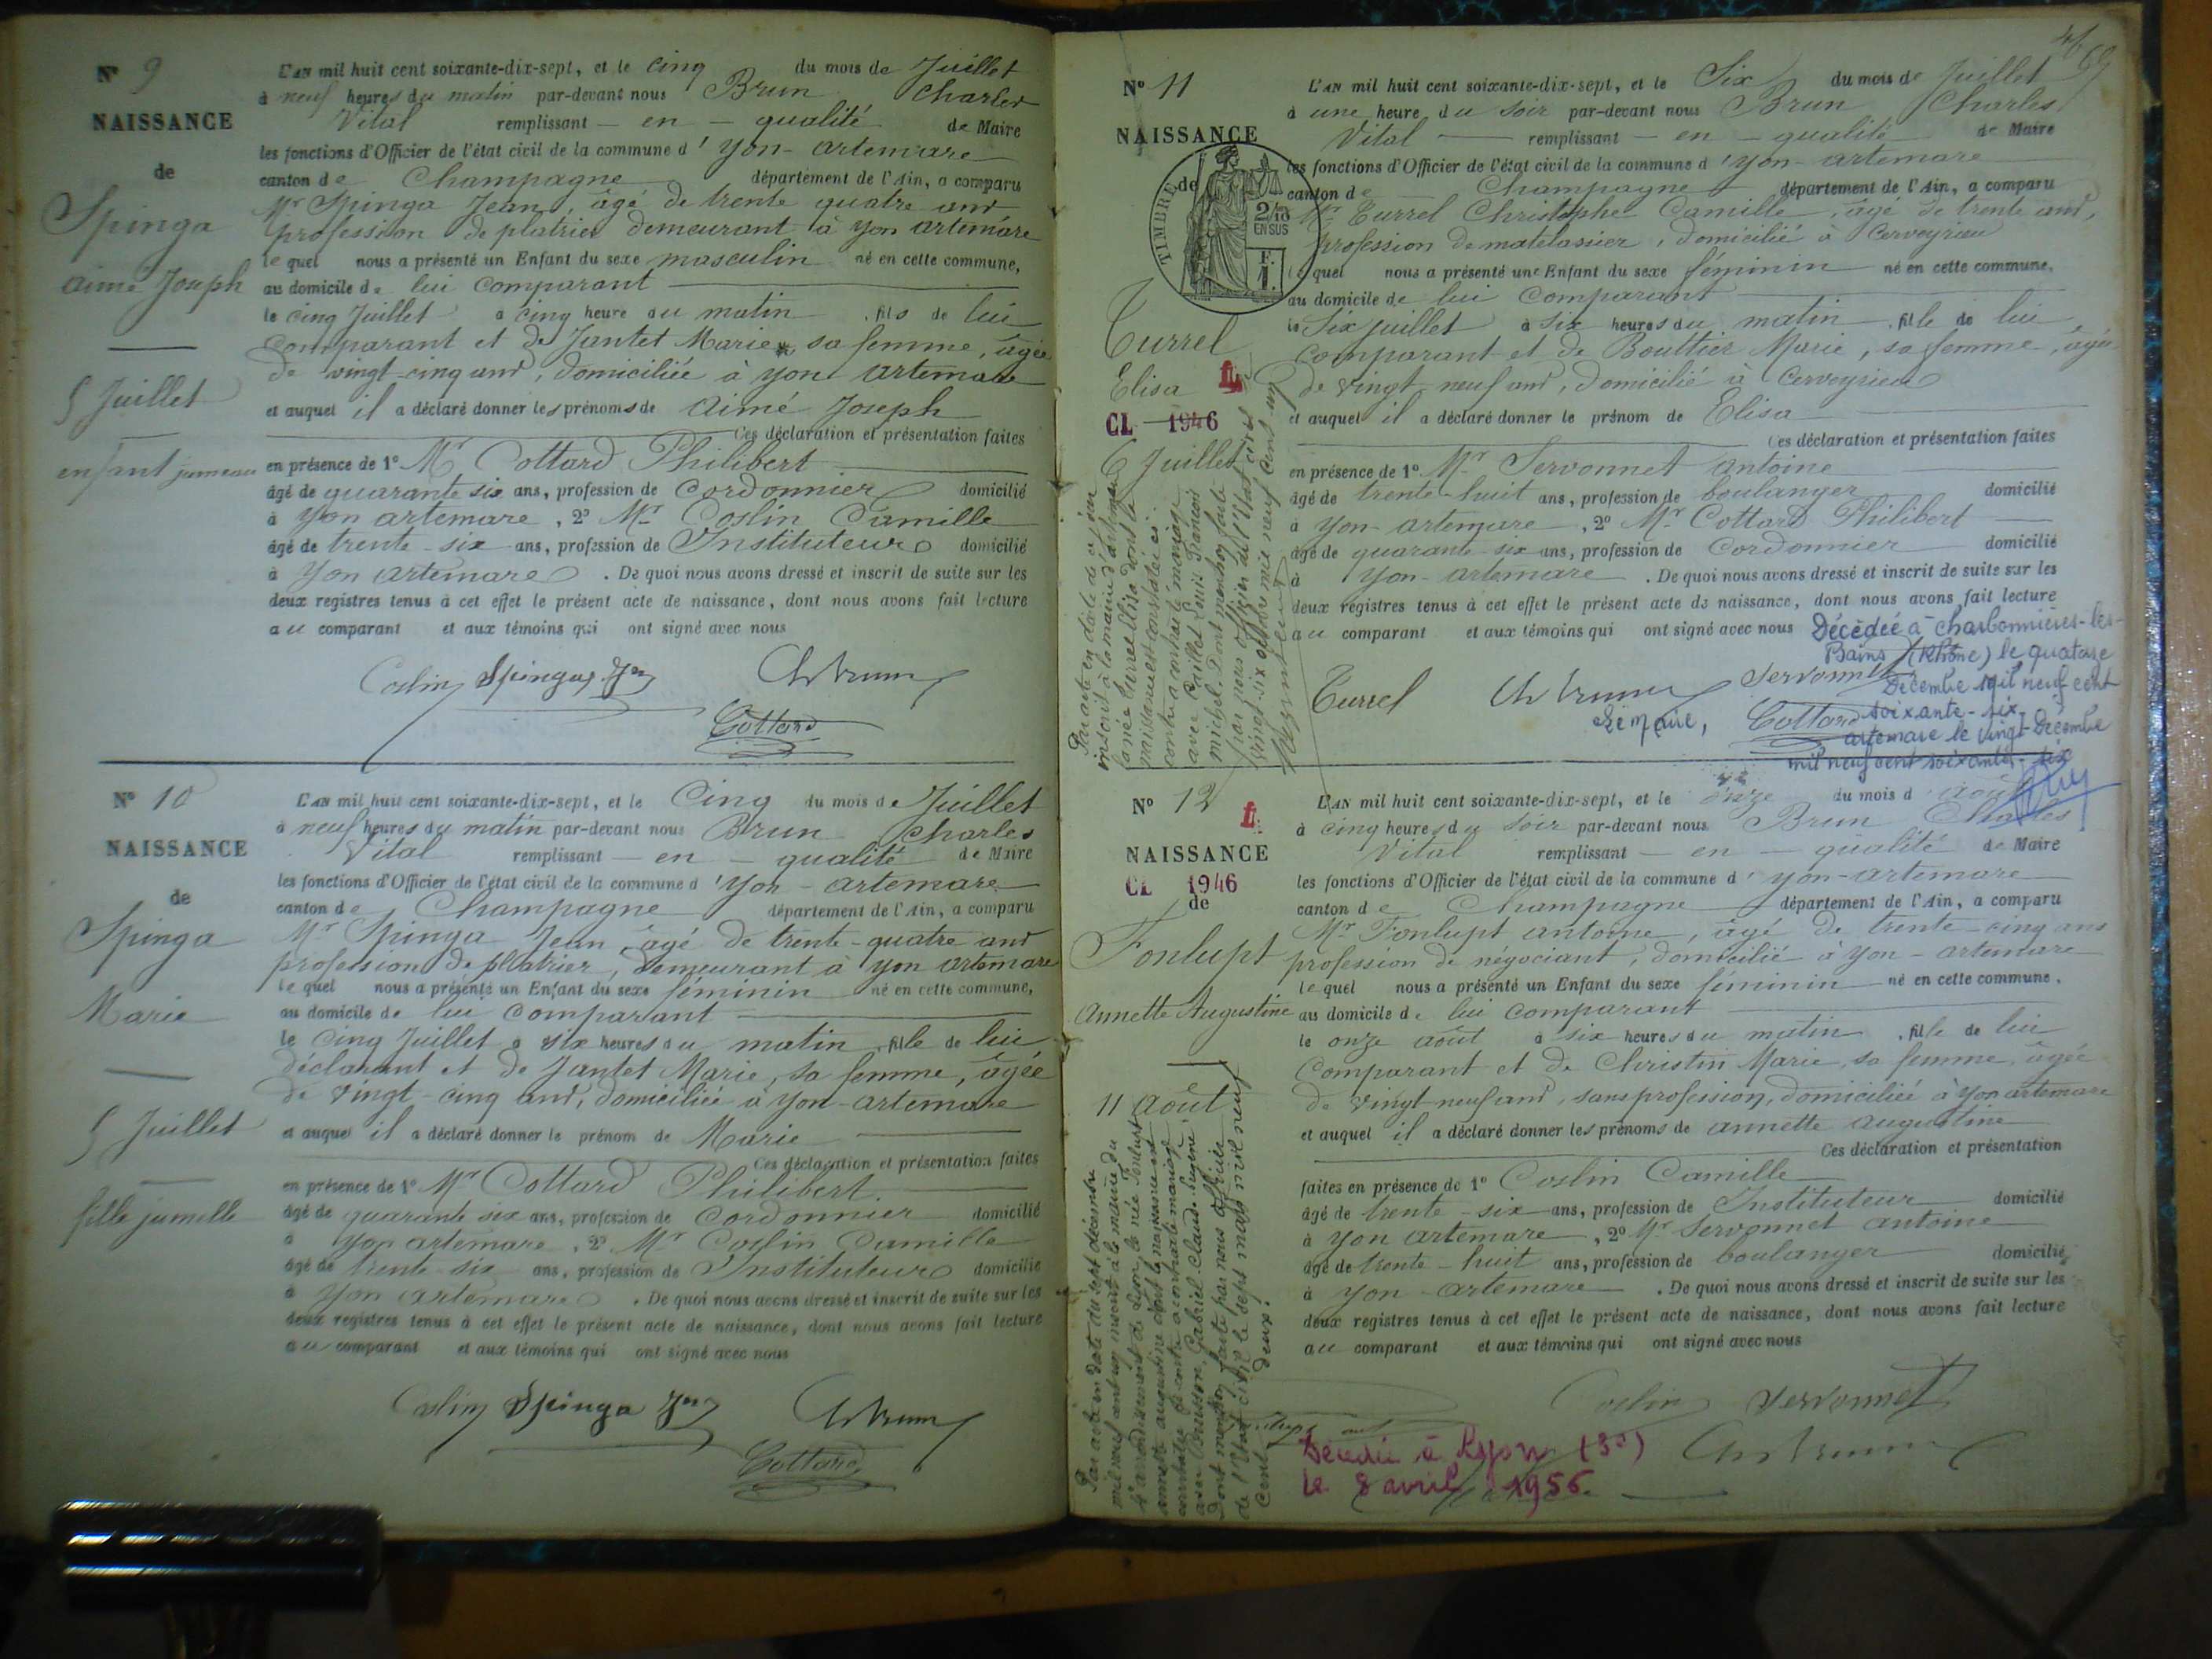 N° 9
NAISSANCE
de
Spinga
Aimé Joseph
5 Juillet
enfant jumeau
L'AN mil huit cent soixante-dix-sept, et le cinq du mois de Juillet
à neuf heures du matin par-devant nous Brun Charles
Vital remplissant en qualité de Maire
les fonctions d'Officier de l'état civil de la commune d'Yon-Artemare
canton de Champagne département de l'Ain, a comparu
Mr Spinga Jean, âgé de trente quatre ans
profession de platrier demeurant à Yon Artemare
lequel nous a présenté un Enfant du sexe masculin né en cette commune,
au domicile de lui comparant
le cinq Juillet à cinq heure du matin, fils de lui
comparant et de Jantet Marie, sa femme, âgée
de vingt-cinq ans, domiciliée à Yon Artemare
et auquel il a déclaré donner les prénoms de Aimé Joseph
Ces déclaration et présentation faites
en présence de 1° Mr Cottard Philibert
âgé de quarante six ans, profession de Cordonnier domicilié
à Yon Artemare, 2° Mr Coslin Camille
âgé de trente-six ans, profession de Instituteur domicilié
à Yon Artemare. De quoi nous avons dressé et inscrit de suite sur les
deux registres tenus à cet effet le présent acte de naissance, dont nous avons fait lecture
au comparant et aux témoins qui ont signé avec nous
Coslin Spinga Jean Ch Brun
Cottard
N° 10
NAISSANCE
de
Spinga
Marie
5 Juillet
fille jumelle
L'AN mil huit cent soixante-dix-sept, et le Cinq du mois de Juillet
à neuf heures du matin par-devant nous Brun Charles
Vital remplissant en qualité de Maire
les fonctions d'Officier de l'état civil de la commune d'Yon-Artemare
canton de Champagne département de l'Ain, a comparu
Mr Spinga Jean, âgé de trente-quatre ans
profession de platrier, demeurant à Yon Artemare
lequel nous a présenté un Enfant du sexe féminin né en cette commune,
au domicile de lui comparant
le cinq Juillet à six heures du matin, fille de lui
déclarant et de Jantet Marie, sa femme, âgée
de vingt-cinq ans, domiciliée à Yon-Artemare
et auquel il a déclaré donner le prénom de Marie
Ces déclaration et présentation faites
en présence de 1° Mr Cottard Philibert.
âgé de quarante six ans, profession de Cordonnier domicilié
à Yon Artemare, 2° Mr Coslin Camille
âgé de trente six ans, profession de Instituteur domicilié
à Yon Artemare. De quoi nous avons dressé et inscrit de suite sur les
deux registres tenus à cet effet le présent acte de naissance, dont nous avons fait lecture
au comparant et aux témoins qui ont signé avec nous
Coslin Spinga Jean Ch Brun
Cottard
N° 11
NAISSANCE
de
TIMBRE
2/10
EN SUS
F.
1.
Turrel
Elisa
CL 1946
6 Juillet
L'AN mil huit cent soixante-dix-sept, et le Six du mois de Juillet
à une heure du soir par-devant nous Brun Charles
Vital remplissant en qualité de Maire
les fonctions d'Officier de l'état civil de la commune d'Yon-Artemare
canton de Champagne département de l'Ain, a comparu
Mr Turrel Christophe Camille, âgé de trente ans,
profession de matelassier, domicilié à Cerveyrieu
lequel nous a présenté une Enfant du sexe féminin né en cette commune,
au domicile de lui comparant
le Six juillet à six heures du matin, fille de lui
comparant et de Bouttier Marie, sa femme, âgée
de vingt neuf ans, domicilié à Cerveyrieu
et auquel il a déclaré donner le prénom de Elisa
Ces déclaration et présentation faites
en présence de 1° Mr Servonnet Antoine
âgé de trente-huit ans, profession de boulanger domicilié
à Yon-Artemare, 2° Mr Cottard Philibert
âgé de quarante-six ans, profession de Cordonnier domicilié
à Yon-Artemare. De quoi nous avons dressé et inscrit de suite sur les
deux registres tenus à cet effet le présent acte de naissance, dont nous avons fait lecture
au comparant et aux témoins qui ont signé avec nous
Décédée à Charbonnières-les-
Bains (Rhône) le quatorze
Décembre mil neuf cent
soixante-six.
Artemare le vingt Décembre
mil neuf cent soixante-six
Turrel Ch Brun Servonnet
Le Maire, Cottard
Par acte en date de ce jour
inscrit à la mairie d'Artemare
la née Turrel Elisa dont la
naissance est constatée ci-
contre a contracté mariage
avec Caillet Louis François
Michel. Dont mention faite
par nous officier de l'Etat civil
vingt-six octobre mil neuf cent un
N° 12
NAISSANCE
CL 1946
de
Fonlupt
Annette Augustine
11 Août
L'AN mil huit cent soixante-dix-sept, et le onze du mois d'août
à cinq heures du soir par-devant nous Brun Charles
Vital remplissant en qualité de Maire
les fonctions d'Officier de l'état civil de la commune d'Yon-Artemare
canton de Champagne département de l'Ain, a comparu
Mr Fonlupt Antoine, âgé de trente-cinq ans
profession de négociant, domicilié à Yon-Artemare
lequel nous a présenté un Enfant du sexe féminin né en cette commune,
au domicile de lui comparant
le onze août à six heures du matin, fille de lui
comparant et de Christin Marie, sa femme, âgée
de vingt neuf ans, sans profession, domiciliée à Yon Artemare
et auquel il a déclaré donner les prénoms de Annette Augustine
Ces déclaration et présentation
faites en présence de 1° Coslin Camille
âgé de trente-six ans, profession de Instituteur domicilié
à Yon Artemare, 2° Mr Servonnet Antoine
âgé de trente-huit ans, profession de boulanger domicilié
à Yon-Artemare. De quoi nous avons dressé et inscrit de suite sur les
deux registres tenus à cet effet le présent acte de naissance, dont nous avons fait lecture
au comparant et aux témoins qui ont signé avec nous
Coslin Servonnet
Ch Brun
Décédée à Lyon (3e)
le 8 avril 1956
Par acte en date du sept décembre
mil neuf cent un, inscrit à la mairie du
4e arrondissement de Lyon, la née Fonlupt
Annette Augustine dont la naissance est
constatée ci-contre a contracté mariage
avec Buisson Gabriel Claude Eugène
Dont mention faite par nous officier
de l'Etat civil le sept mars mil neuf
cent deux.